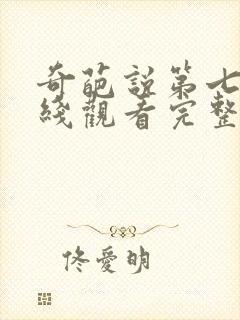 奇葩説第七
綫觀看完整
佟愛明